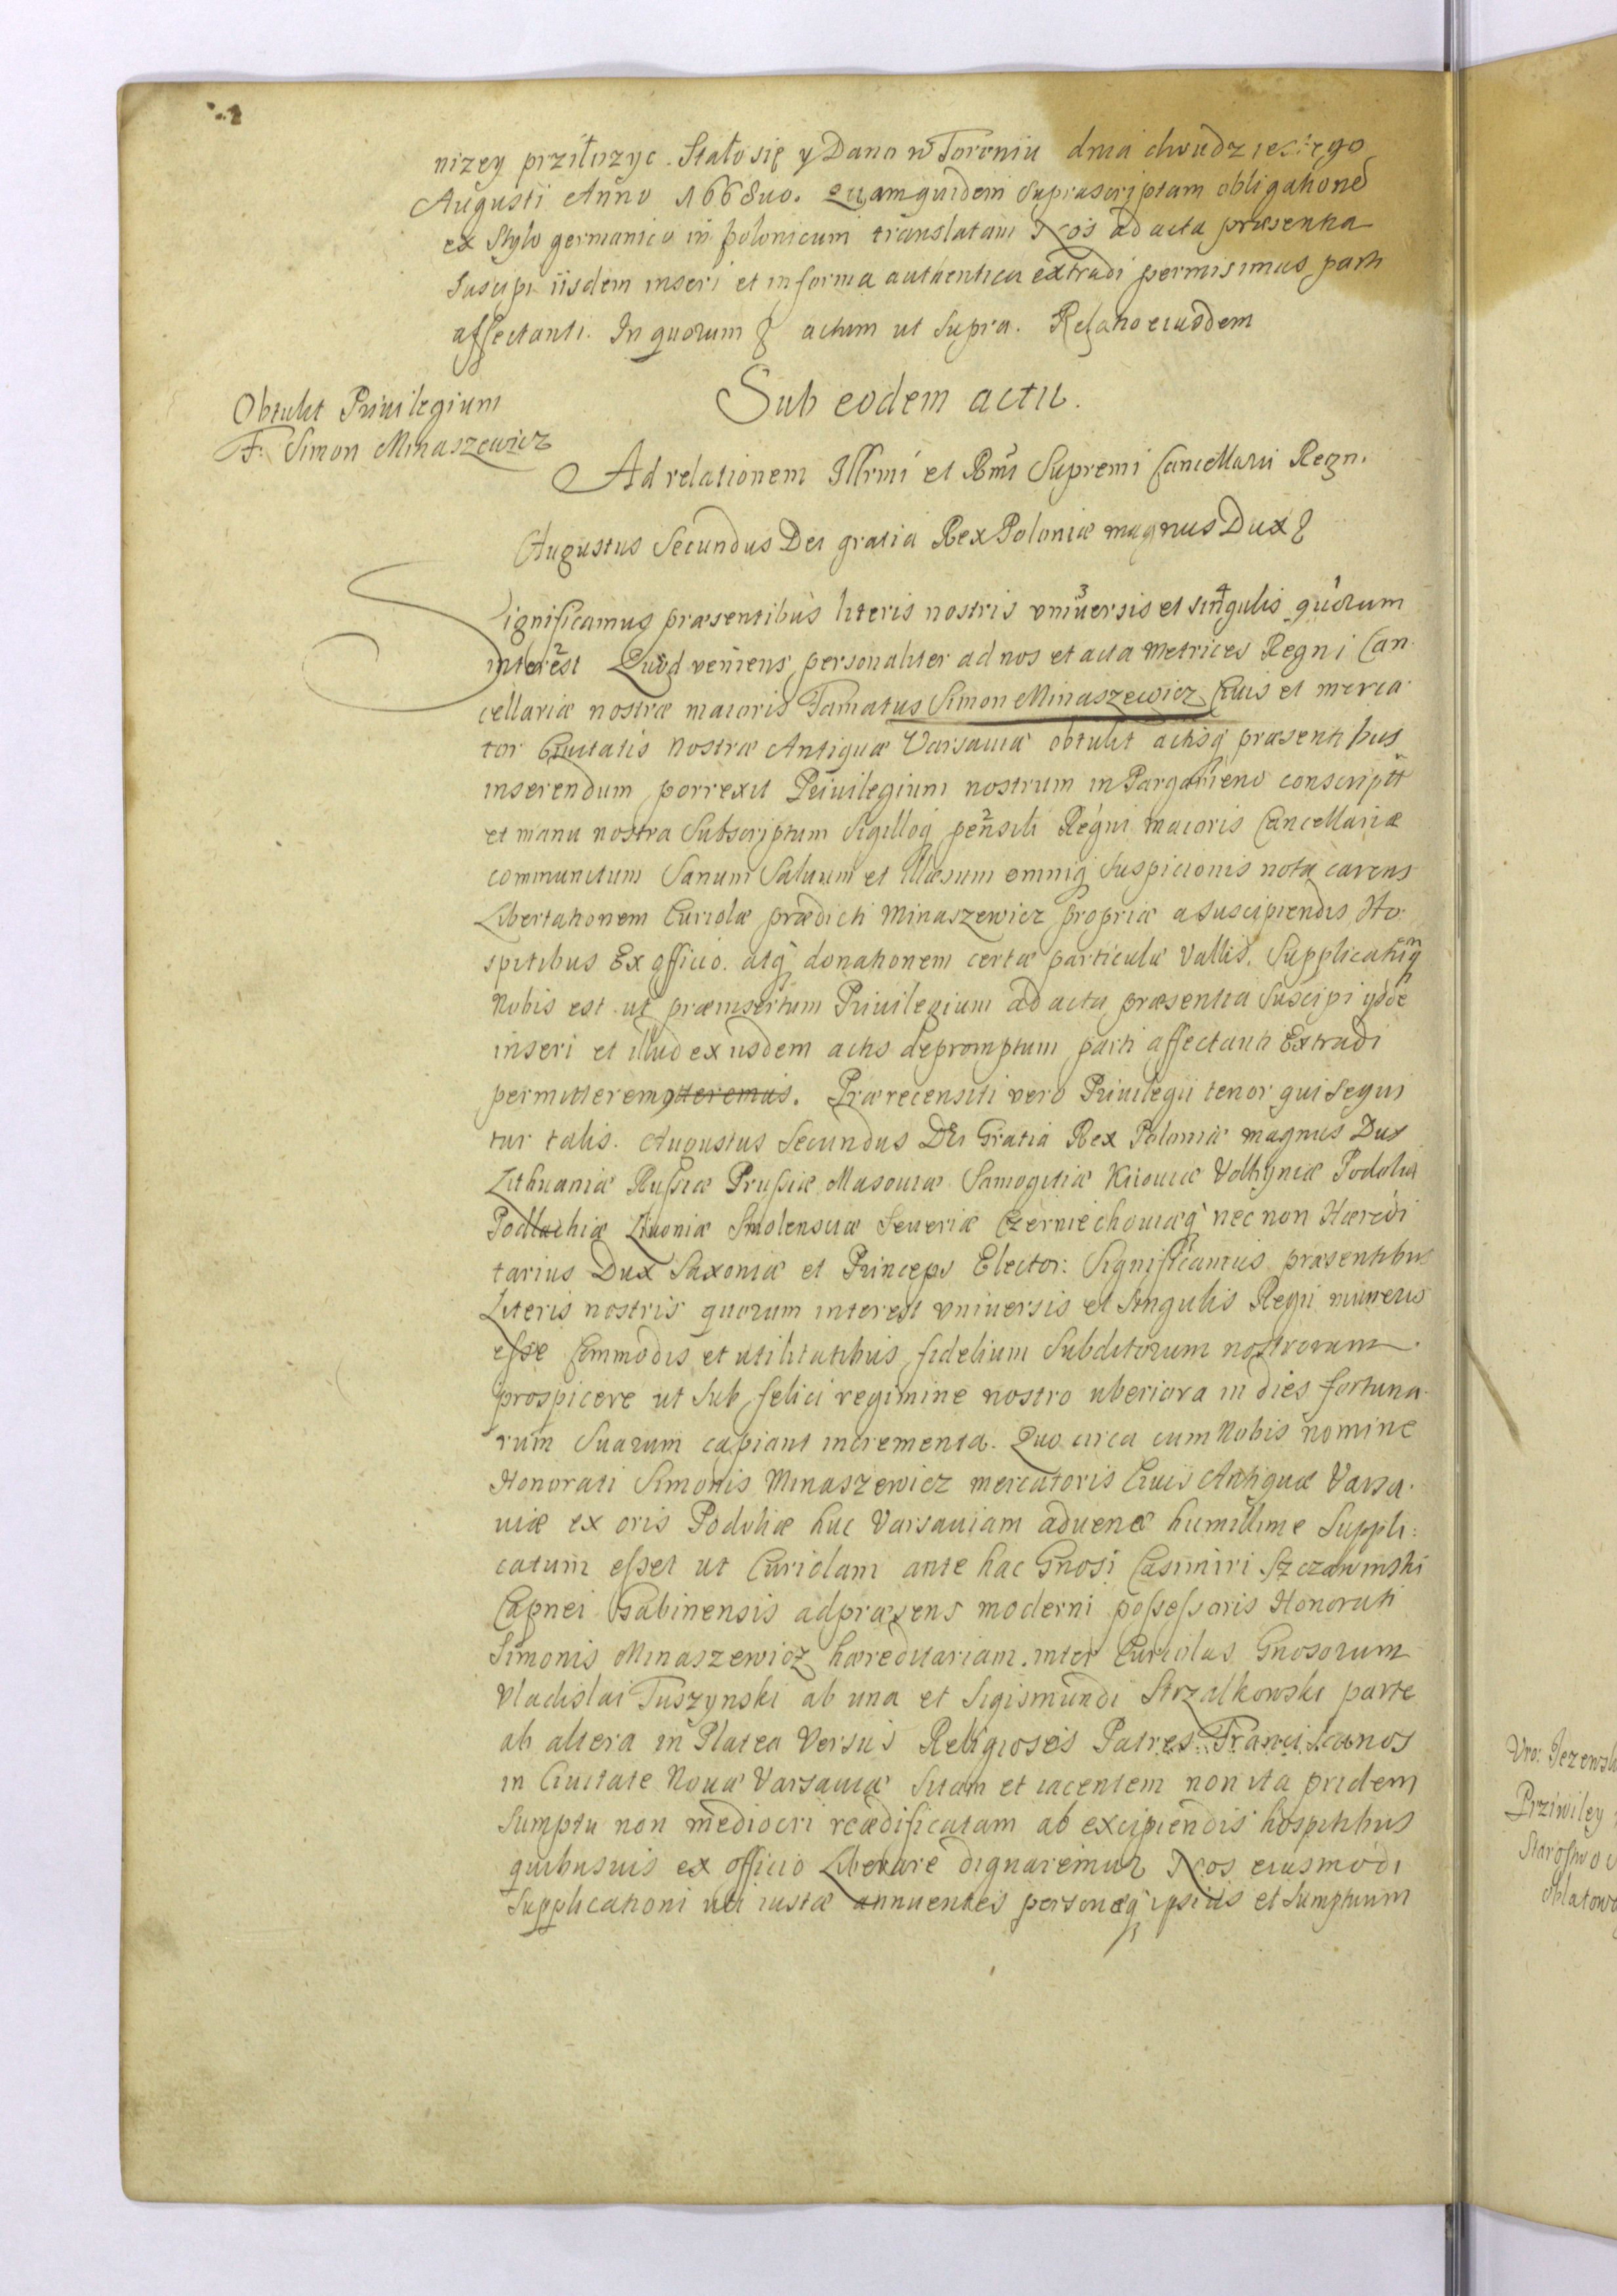 nizey przÿłozyc. Stało się y Dano w Toroniu dnia dwudziestego
Augusti Anno 1668uo. Quam quidem suprascriptam obligationē
ex stylo germanico in polonicum translatam Nos ad acta præsentia
suscipi iisdem inseri et in forma authentica extradi permisimus parti
affectanti. In quorum & actum ut supra. Relatio eiusdem
Obtulit Priuilegium
F. Simon Minaszewicz
Sub eodem actu.
Ad relationem Illrmi et Rmi Supremi Cancellarii Regn.
Augustus Secundus Dei gratia Rex Poloniæ magnus Dux &
Significamus præsentibus literis nostris vniuersis et singulis quorum
interest Quod veniens personaliter ad nos et acta Metrices Regni Can
cellariæ nostræ maioris Famatus Simon Minaszewicz Ciuis et merca
tor Ciuitatis nostræ Antiquæ Varsauiæ obtulit actisq præsentibus
inserendum porrexit Priuilegium nostrum in Pargameno conscriptū
et manu nostra subscriptum sigilloq pensili Regni maioris Cancellariæ
communitum sanum saluum et illæsum omniq suspicionis nota carens
Libertationem Curiolæ prædicti Minaszewicz propriæ a suscipiendis Ho
spitibus Ex officio. atq donationem certæ particulæ vallis. Supplicatūq
Nobis est ut præinsertum Priuilegium ad acta præsentia suscipi ÿsdē
inseri et illud ex iisdem actis depromptum parti affectanti Extradi
permitteremꝰ tteremus. Prærecensiti vero Priuilegii tenor qui sequi
tur talis. Augustus Secundus Dei Gratia Rex Poloniæ magnus Dux
Lithuaniæ Russiæ Prussiæ Masouiæ Samogitiæ Kiiouiæ Volhyniæ Podoliæ
Podlachiæ Liuoniæ Smolensciæ Seueriæ Czerniechouiæq nec non Hæredi
tarius Dux Saxoniæ et Princeps Elector: Significamus præsentibus
Literis nostris quorum interest vniuersis et singulis Regii muneris
esse Commodis et utilitatibus fidelium subditorum nostrorum
prospicere ut sub felici regimine nostro uberiora in dies fortuna
rum suarum capiant incrementa. Quo circa cum Nobis nomine
Honorati Simonis Minaszewicz mercatoris Ciuis Antiquæ Varsa
uiæ ex oris Podoliæ huc Varsauiam aduenæ humillime suppli:
catum esset ut Curiolam ante hac Gnosi Casimiri Szczawinski
Capnei Gabinensis ad præsens moderni possessoris Honorati
Simonis Minaszewicz hæreditariam. inter Curiolas Gnosorum
Vladislai Tuszynski ab una et Sigismundi Strzalkowski parte
ab altera in Platea Versus Religiosos Patres Franciscanos
in Ciuitate Noua Varsauiæ sitam et iacentem non ita pridem
sumptu non mediocri reædificatam ab excipiendis hospitibus
quibusuis ex officio Liberare dignaremur Nos eiusmodi
supplicationi uti iustæ annuentes personæq ipsius et sumptuum
Vro: Jezewsk
Prziwiley
Starostwo
oblatow